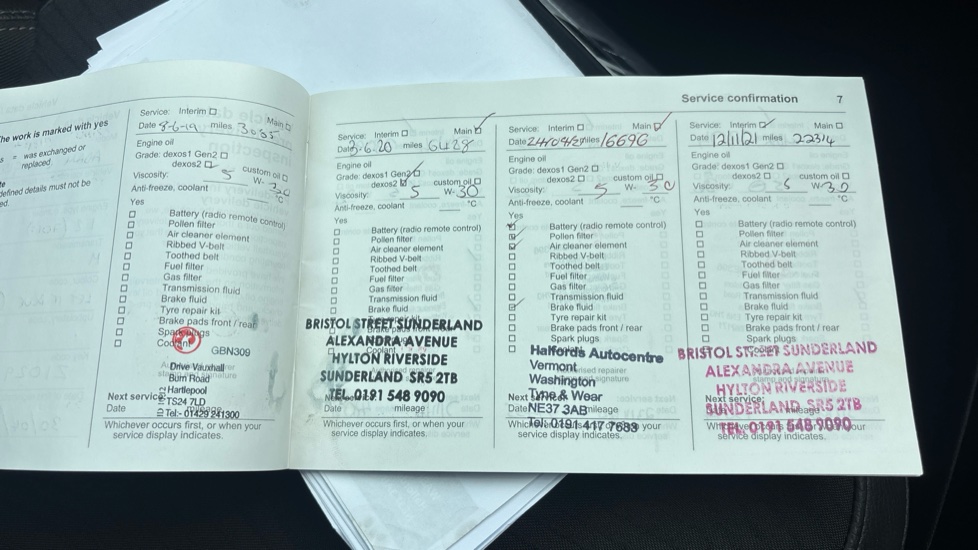 Service confirmation 7
he work is marked with yes
= was exchanged or
replaced.
defined details must not be
Service: Interim ☐ Main ☐
Date 8-6-19 miles 3035
Engine oil
Grade: dexos1 Gen2 ☐
dexos2 ☐ custom oil ☐
Viscosity: 5 W- 30
Anti-freeze, coolant °C
Yes
☐ Battery (radio remote control)
☐ Pollen filter
☐ Air cleaner element
☐ Ribbed V-belt
☐ Toothed belt
☐ Fuel filter
☐ Gas filter
☐ Transmission fluid
☐ Brake fluid
☐ Tyre repair kit
☐ Brake pads front / rear
☐ Spark plugs
☐ Coolant
GBN309
Drive Vauxhall
Burn Road
Hartlepool
TS24 7LD
Tel:- 01429 241300
Next service:
Date mileage
Whichever occurs first, or when your
service display indicates.
Service: Interim ☐ Main ☑
Date 3.6.20 miles 6428
Engine oil
Grade: dexos1 Gen2 ☐
dexos2 ☑ custom oil ☐
Viscosity: 5 W- 30
Anti-freeze, coolant °C
Yes
☐ Battery (radio remote control)
☐ Pollen filter
☐ Air cleaner element
☐ Ribbed V-belt
☐ Toothed belt
☐ Fuel filter
☐ Gas filter
☐ Transmission fluid
☐ Brake fluid
BRISTOL STREET SUNDERLAND
ALEXANDRA AVENUE
HYLTON RIVERSIDE
SUNDERLAND SR5 2TB
TEL. 0191 548 9090
Date mileage
Whichever occurs first, or when your
service display indicates.
Service: Interim ☐ Main ☑
Date miles 16696
Engine oil
Grade: dexos1 Gen2 ☐
dexos2 ☐ custom oil ☐
Viscosity: 5 W- 30
Anti-freeze, coolant °C
Yes
☑ Battery (radio remote control)
☑ Pollen filter
☑ Air cleaner element
☐ Ribbed V-belt
☐ Toothed belt
☐ Fuel filter
☐ Gas filter
☐ Transmission fluid
☑ Brake fluid
☐ Tyre repair kit
☐ Brake pads front / rear
☐ Spark plugs
Halfords Autocentre
Vermont
Washington
Tyne & Wear
NE37 3AB
Tel: 0191 417 7683
Date mileage
service display indicates.
Service: Interim ☑ Main ☐
Date 12/11/21 miles 22314
Engine oil
Grade: dexos1 Gen2 ☐
dexos2 ☐ custom oil ☐
Viscosity: 5 W- 30
Anti-freeze, coolant °C
Yes
☐ Battery (radio remote control)
☐ Pollen filter
☐ Air cleaner element
☐ Ribbed V-belt
☐ Toothed belt
☐ Fuel filter
☐ Gas filter
☐ Transmission fluid
☐ Brake fluid
☐ Tyre repair kit
☐ Brake pads front / rear
☐ Spark plugs
BRISTOL STREET SUNDERLAND
ALEXANDRA AVENUE
HYLTON RIVERSIDE
SUNDERLAND SR5 2TB
TEL. 0191 548 9090
service display indicates.